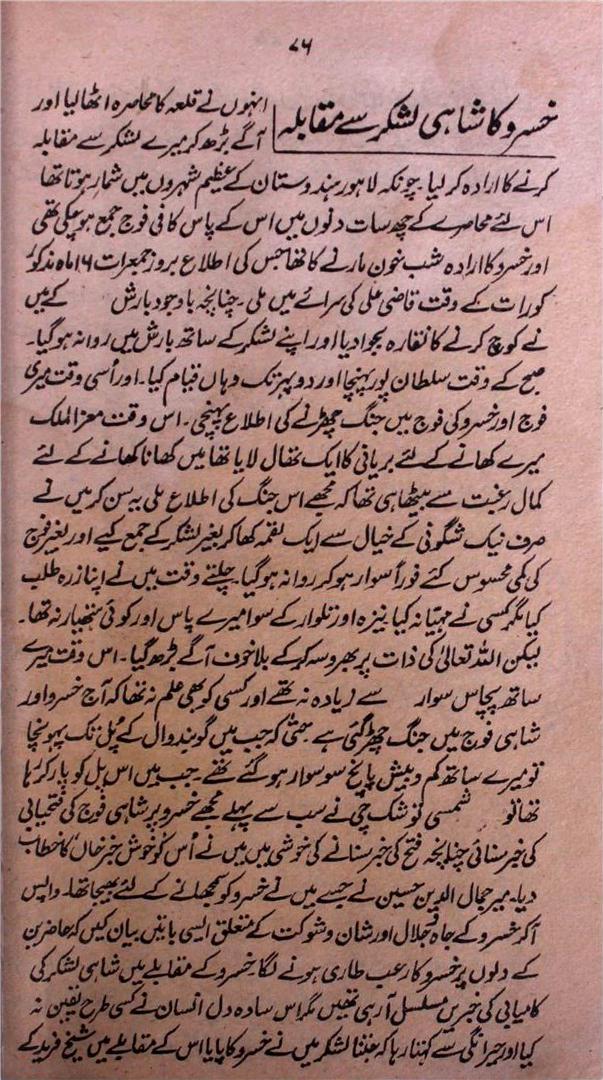 ۷۶
خسرو کا شاہی لشکر سے مقابلہ
انہوں نے قلعہ کا محاصرہ اٹھا لیا اور
آگے بڑھ کر میرے لشکر سے مقابلہ
کرنے کا ارادہ کر لیا۔ چونکہ لاہور ہندوستان کے عظیم شہروں میں شمار ہوتا تھا
اس لئے محاصرے کے چھ سات دنوں میں اس کے پاس کافی فوج جمع ہو چکی تھی
اور خسرو کا ارادہ شب خون مارنے کا تھا جس کی اطلاع بروز جمعرات ۱۶ ماہ مذکور
کو رات کے وقت قاضی علی کی سرائے میں ملی۔ چنانچہ باوجود بارش کے میں
نے کوچ کرنے کا نقارہ بجوا دیا اور اپنے لشکر کے ساتھ بارش میں روانہ ہو گیا۔
صبح کے وقت سلطان پور پہنچا اور دوپہر تک وہاں قیام کیا۔ اور اُسی وقت میری
فوج اور خسرو کی فوج میں جنگ چھڑنے کی اطلاع پہنچی۔ اس وقت معز الملک
میرے کھانے کے لئے بریانی کا ایک تھال لایا تھا میں کھانا کھانے کے لئے
کمال رغبت سے بیٹھا ہی تھا کہ مجھے اس جنگ کی اطلاع ملی یہ سن کر میں نے
صرف نیک شگونی کے خیال سے ایک لقمہ کھا کر بغیر لشکر کے جمع کیے اور بغیر فوج
کی کمی محسوس کئے فوراً سوار ہو کر روانہ ہو گیا۔ چلتے وقت میں نے اپنا زرہ طلب
کیا مگر کسی نے مہیّا نہ کیا۔ نیزہ اور تلوار کے سوا میرے پاس اور کوئی ہتھیار نہ تھا۔
لیکن اللہ تعالیٰ کی ذات پر بھروسہ کر کے بلا خوف آگے بڑھ گیا۔ اس وقت میرے
ساتھ پچاس سوار سے زیادہ نہ تھے اور کسی کو بھی علم نہ تھا کہ آج خسرو اور
شاہی فوج میں جنگ چھڑ گئی ہے حتیٰ کہ جب میں گوندوال کے پُل تک پہونچا
تو میرے ساتھ کم و بیش پانچ سو سوار ہو گئے تھے۔ جب میں اس پل کو پار کر رہا
تھا تو شمسی توشک چی نے سب سے پہلے مجھے خسرو پر شاہی فوج کی فتحیابی
کی خبر سنائی چنانچہ فتح کی خبر سنانے کی خوشی میں میں نے اُس کو خوش خبر خاں کا خطاب
دیا۔ میر جمال الدین حسین نے جسے میں نے خسرو کو سمجھانے کے لئے بھیجا تھا۔ واپس
آ کر خسرو کے جاہ و جلال اور شان و شوکت کے متعلق ایسی باتیں بیان کیں کہ حاضرین
کے دلوں پر خسرو کا رعب طاری ہونے لگا۔ خسرو کے مقابلے میں شاہی لشکر کی
کامیابی کی خبریں مسلسل آ رہی تھیں مگر اس سادہ دل انسان نے کسی طرح یقین نہ
کیا اور حیرانگی سے کہتا رہا کہ جتنا لشکر میں نے خسرو کا پایا اس کے مقابلے میں شیخ فرید کے